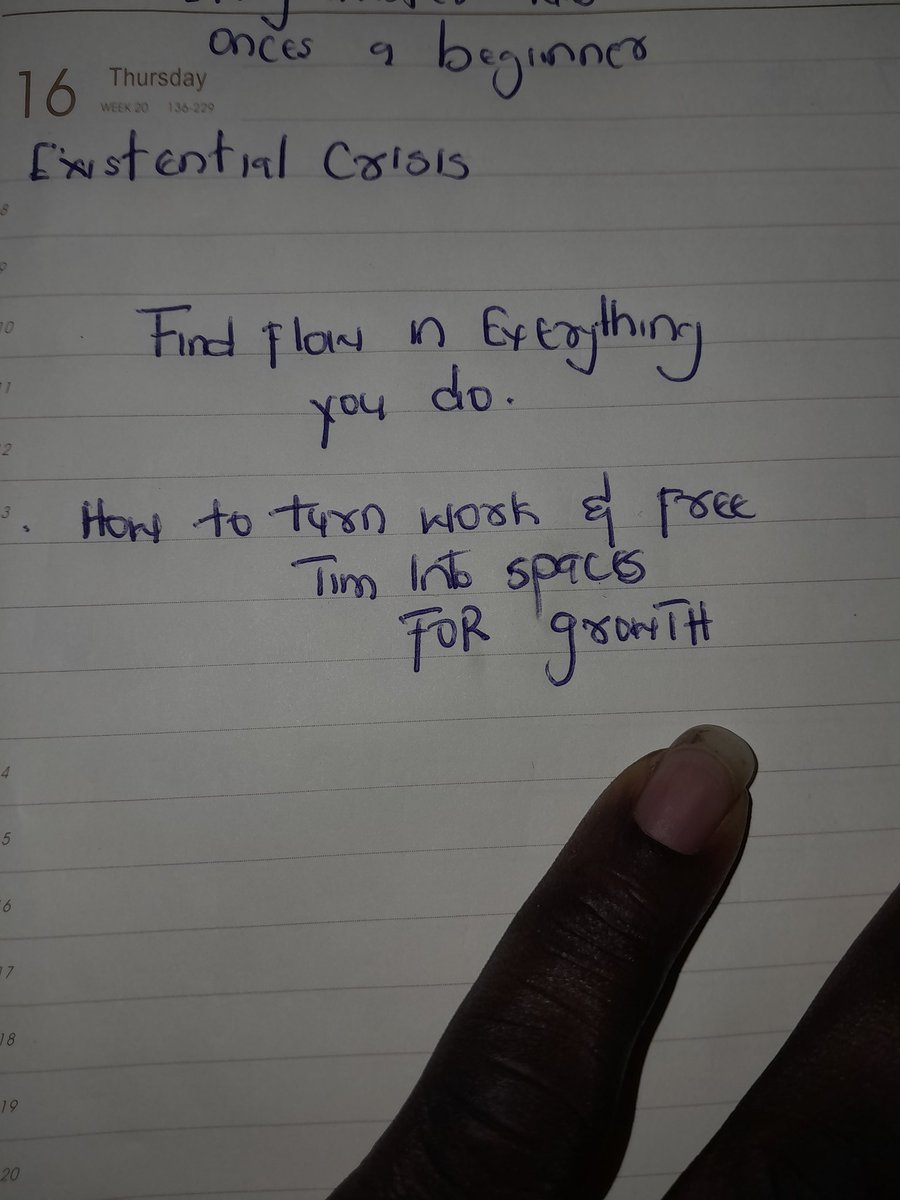 onces a beginner
16 Thursday
WEEK 20 136-229
Existential Crisis
8
9
10
Find flow in Everything
11
you do.
12
3
. How to turn work & free
Tim Into spaces
FOR growTH
4
5
6
17
18
19
20